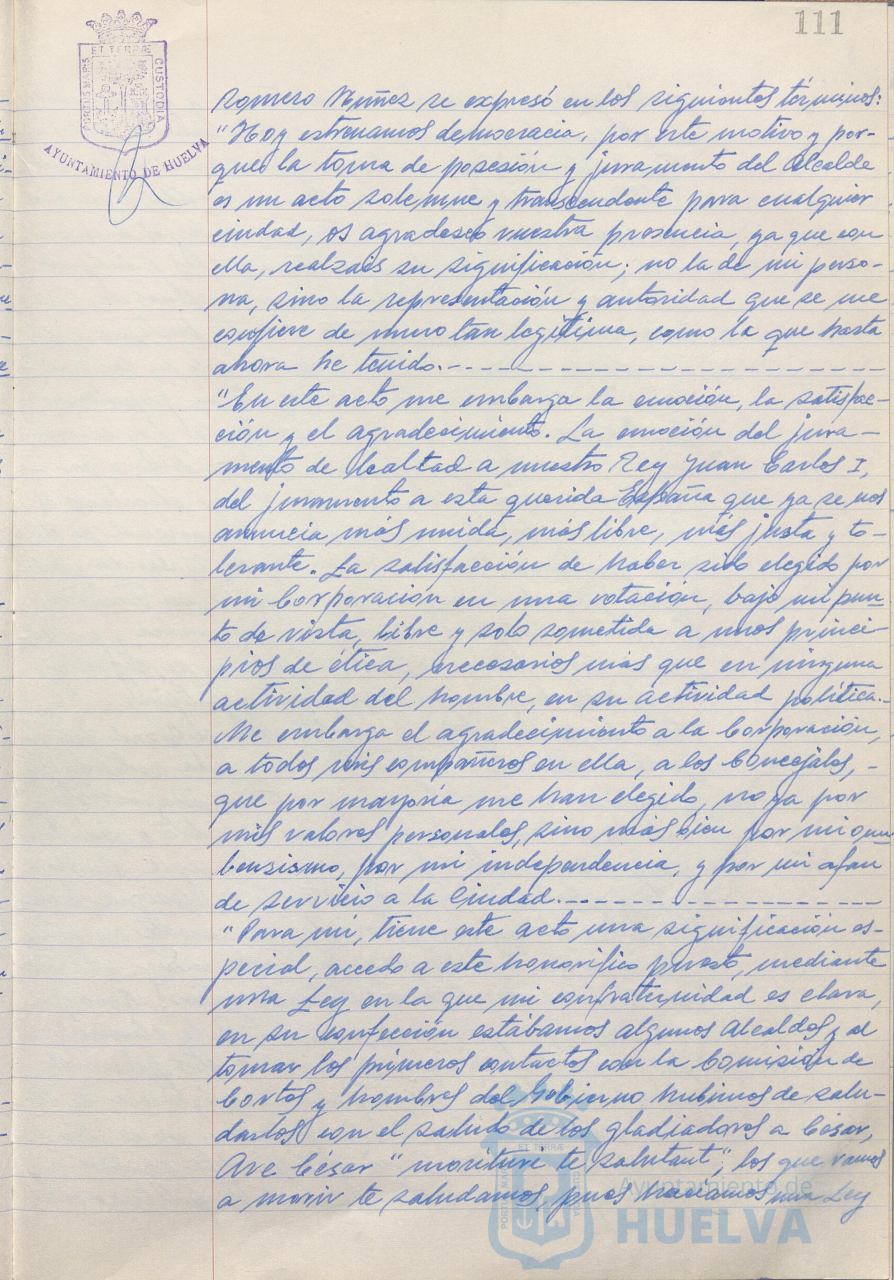 111
PORTUS MARIS ET TERRÆ CUSTODIA
AYUNTAMIENTO DE HUELVA
Romero Núñez se expresó en los siguientes términos:
"Hoy estrenamos democracia, por este motivo y por-
que la toma de posesión y juramento del Alcalde
es un acto solemne y transcendente para cualquier
ciudad, os agradezco vuestra presencia, ya que con
ella, realzais su significación; no la de mi perso-
na, sino la representación y autoridad que se me
confiere de nuevo tan legítima, como la que hasta
ahora he tenido.--------------------
"En este acto me embarga la emoción, la satisfac-
ción y el agradecimiento. La emoción del jura-
mento de lealtad a nuestro Rey Juan Carlos I,
del juramento a esta querida España que ya se nos
anuncia más unida, más libre, más justa y to-
lerante. La satisfacción de haber sido elegido por
mi Corporación en una votación, bajo mi pun-
to de vista, libre y solo sometida a unos princi-
pios de ética, necesarios más que en ninguna
actividad del hombre, en su actividad política.-
Me embarga el agradecimiento a la Corporación,
a todos mis compañeros en ella, a los Concejales,-
que por mayoría me han elegido, no ya por
mis valores personales, sino más bien por mi onu-
bensismo, por mi independencia, y por mi afan
de servicio a la Ciudad.--------------------
"Para mí, tiene este acto una significación es-
pecial, accedo a este honorífico puesto, mediante
una Ley en la que mi confraternidad es clara,
en su confección estábamos algunos Alcaldes y al
tomar los primeros contactos con la Comisión de
Cortes y hombres del Gobierno hubimos de salu-
darlos con el saludo de los gladiadores a César,
Ave César "morituri te salutant", los que vamos
a morir te saludamos, pues hacíamos una Ley
Ayuntamiento de
HUELVA